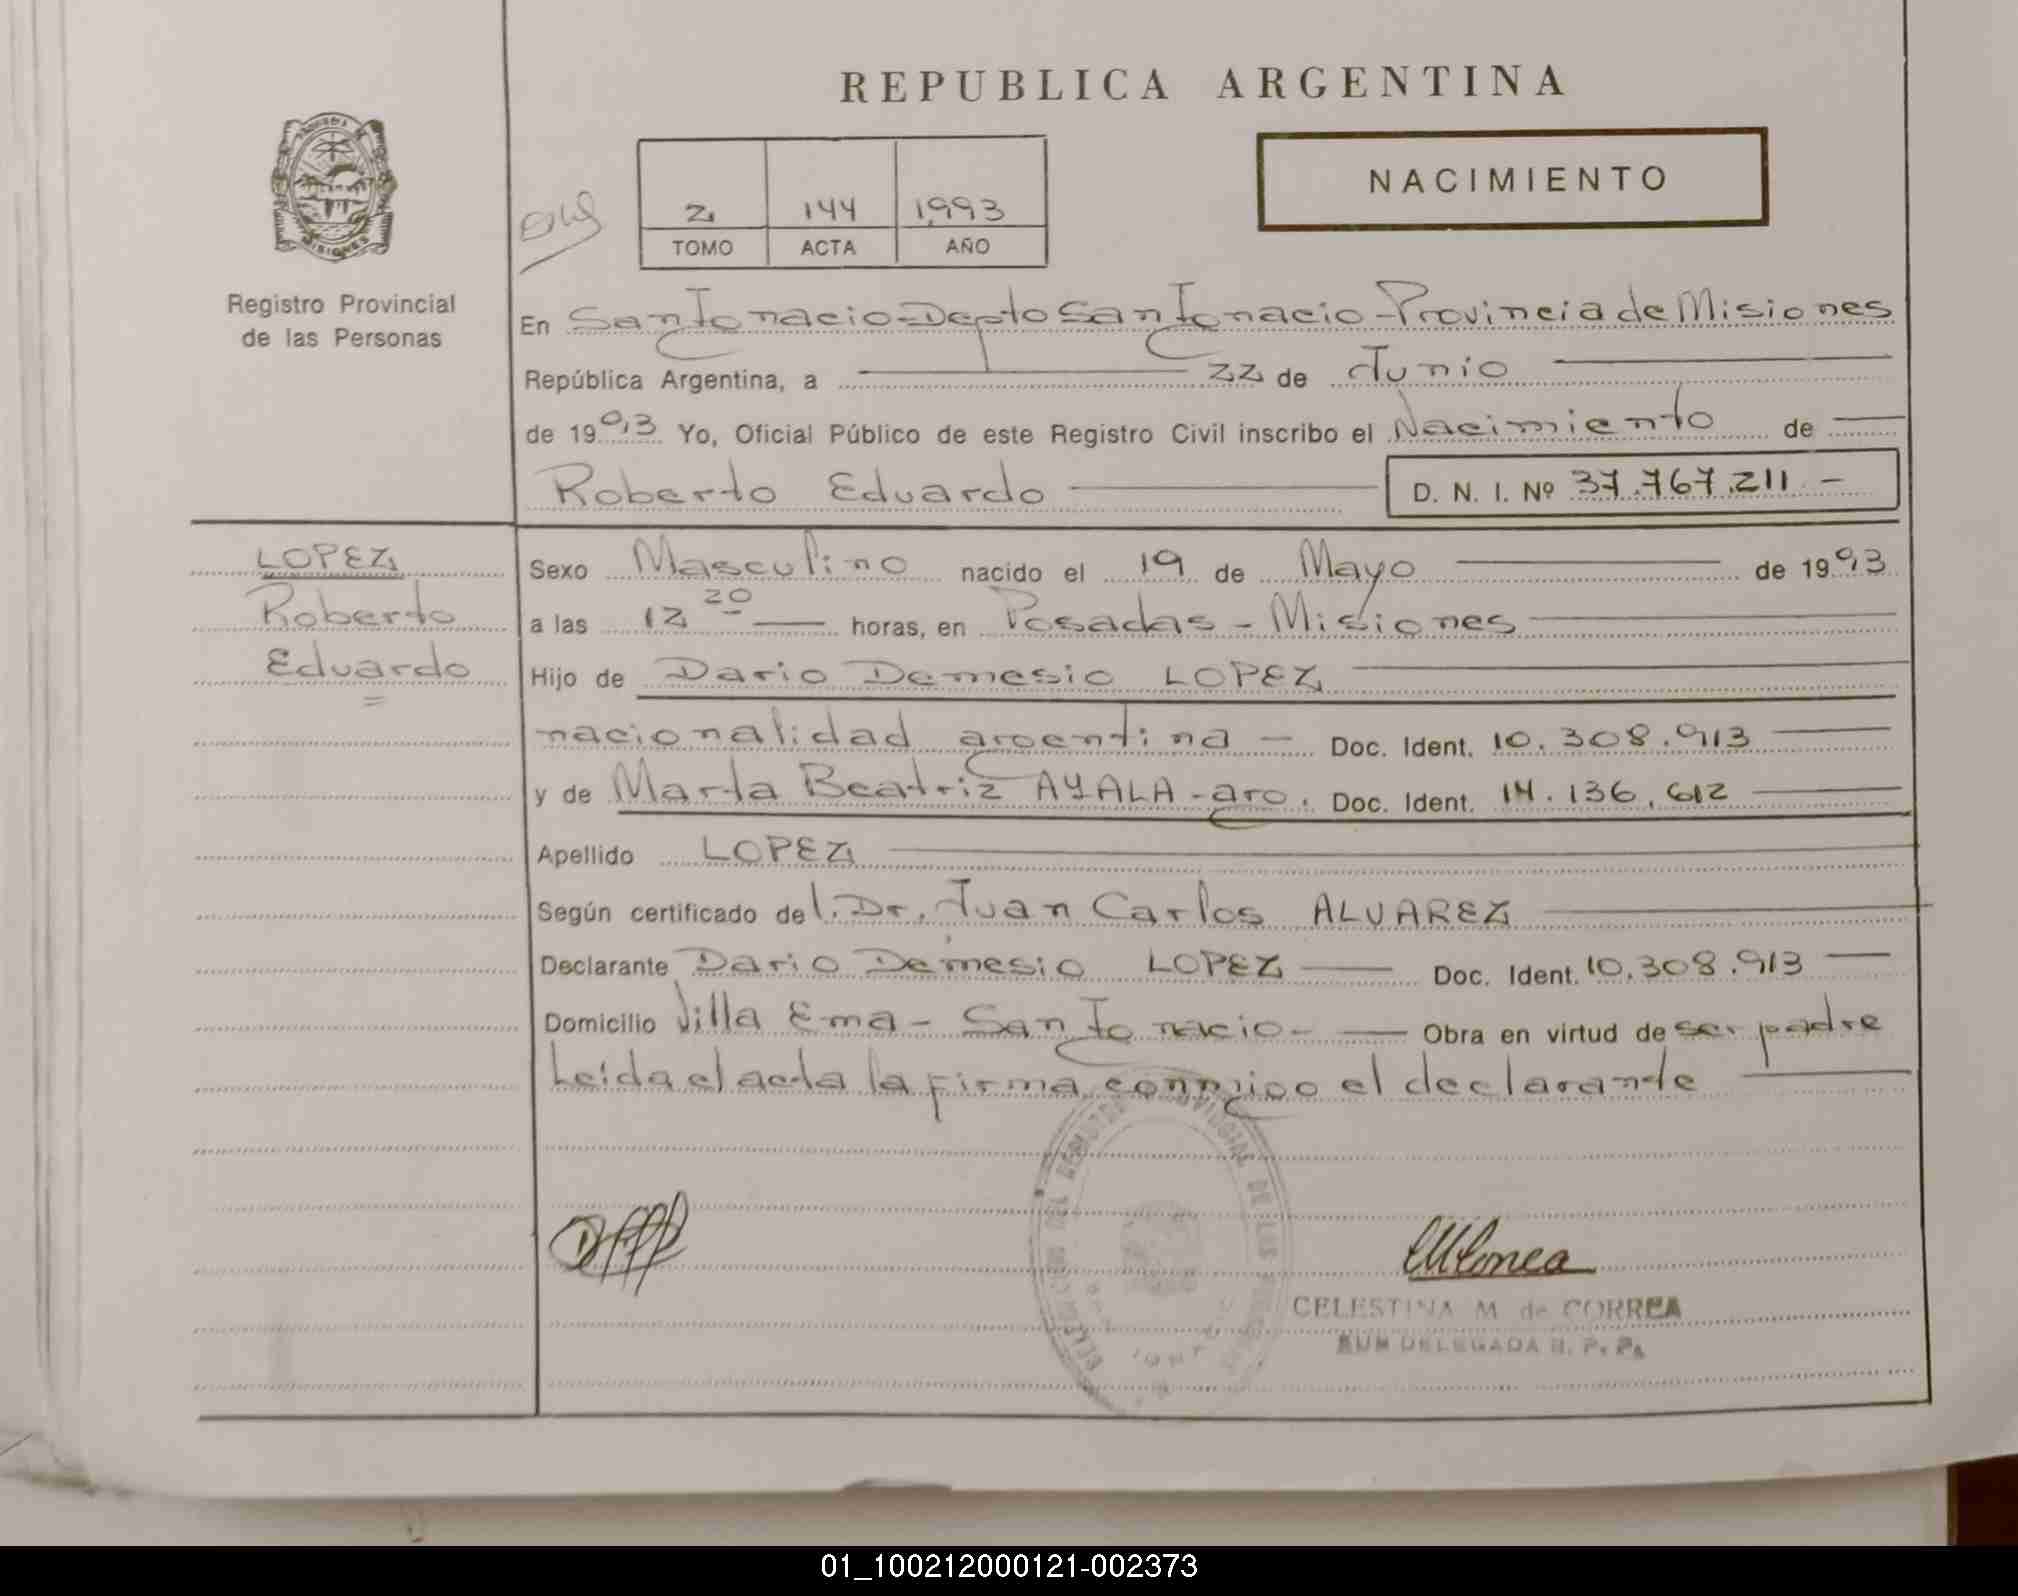 REPUBLICA ARGENTINA
NACIMIENTO
2 144 1993
TOMO ACTA AÑO
PROVINCIA DE MISIONES
Registro Provincial
de las Personas
En San Ignacio - Depto San Ignacio - Provincia de Misiones
República Argentina, a 22 de Junio
de 1993 Yo, Oficial Público de este Registro Civil inscribo el Nacimiento de
Roberto Eduardo D. N. I. Nº 37.767.211 -
LOPEZ
Roberto
Eduardo
Sexo Masculino nacido el 19 de Mayo de 1993
a las 12 20 horas, en Posadas - Misiones
Hijo de Dario Demesio LOPEZ
nacionalidad argentina - Doc. Ident. 10.308.913
y de Marta Beatriz AYALA - arg. Doc. Ident. 14.136.612
Apellido LOPEZ
Según certificado del. Dr. Juan Carlos ALVAREZ
Declarante Dario Demesio LOPEZ Doc. Ident. 10.308.913
Domicilio Villa Ema - San Ignacio - Obra en virtud de ser padre
Leida el acta la firma conmigo el declarante
CELESTINA M. de CORREA
SUB DELEGADA R. P. P.
01_100212000121-002373